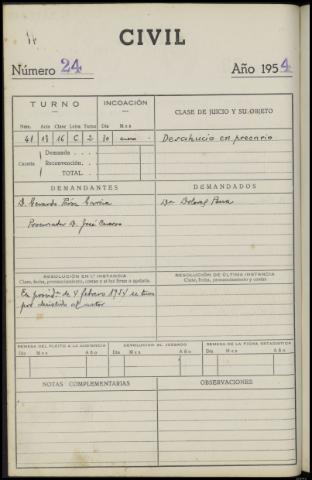 CIVIL
Número 24 Año 1954
TURNO INCOACIÓN CLASE DE JUICIO Y SU OBJETO
Núm. Año Clase Letra Turno Día Mes
41 13 16 C 2 20 enero Desahucio en precario
Cuantía Demanda
Reconvención
TOTAL
DEMANDANTES DEMANDADOS
D. Gerardo García Dª Dolores Pena
Procurador D. José
RESOLUCIÓN EN 1.ª INSTANCIA RESOLUCIÓN DE ÚLTIMA INSTANCIA
Clase, fecha, pronunciamiento, costas y si fué firme o apelada. Clase, fecha, pronunciamiento y costas
En providª de 4 febrero 1954 se tuvo
por desistido al actor
REMESA DEL PLEITO A LA AUDIENCIA DEVOLUCIÓN AL JUZGADO REMESA DE LA FICHA ESTADÍSTICA
Día Mes Año Día Mes Año Día Mes Año
NOTAS COMPLEMENTARIAS OBSERVACIONES